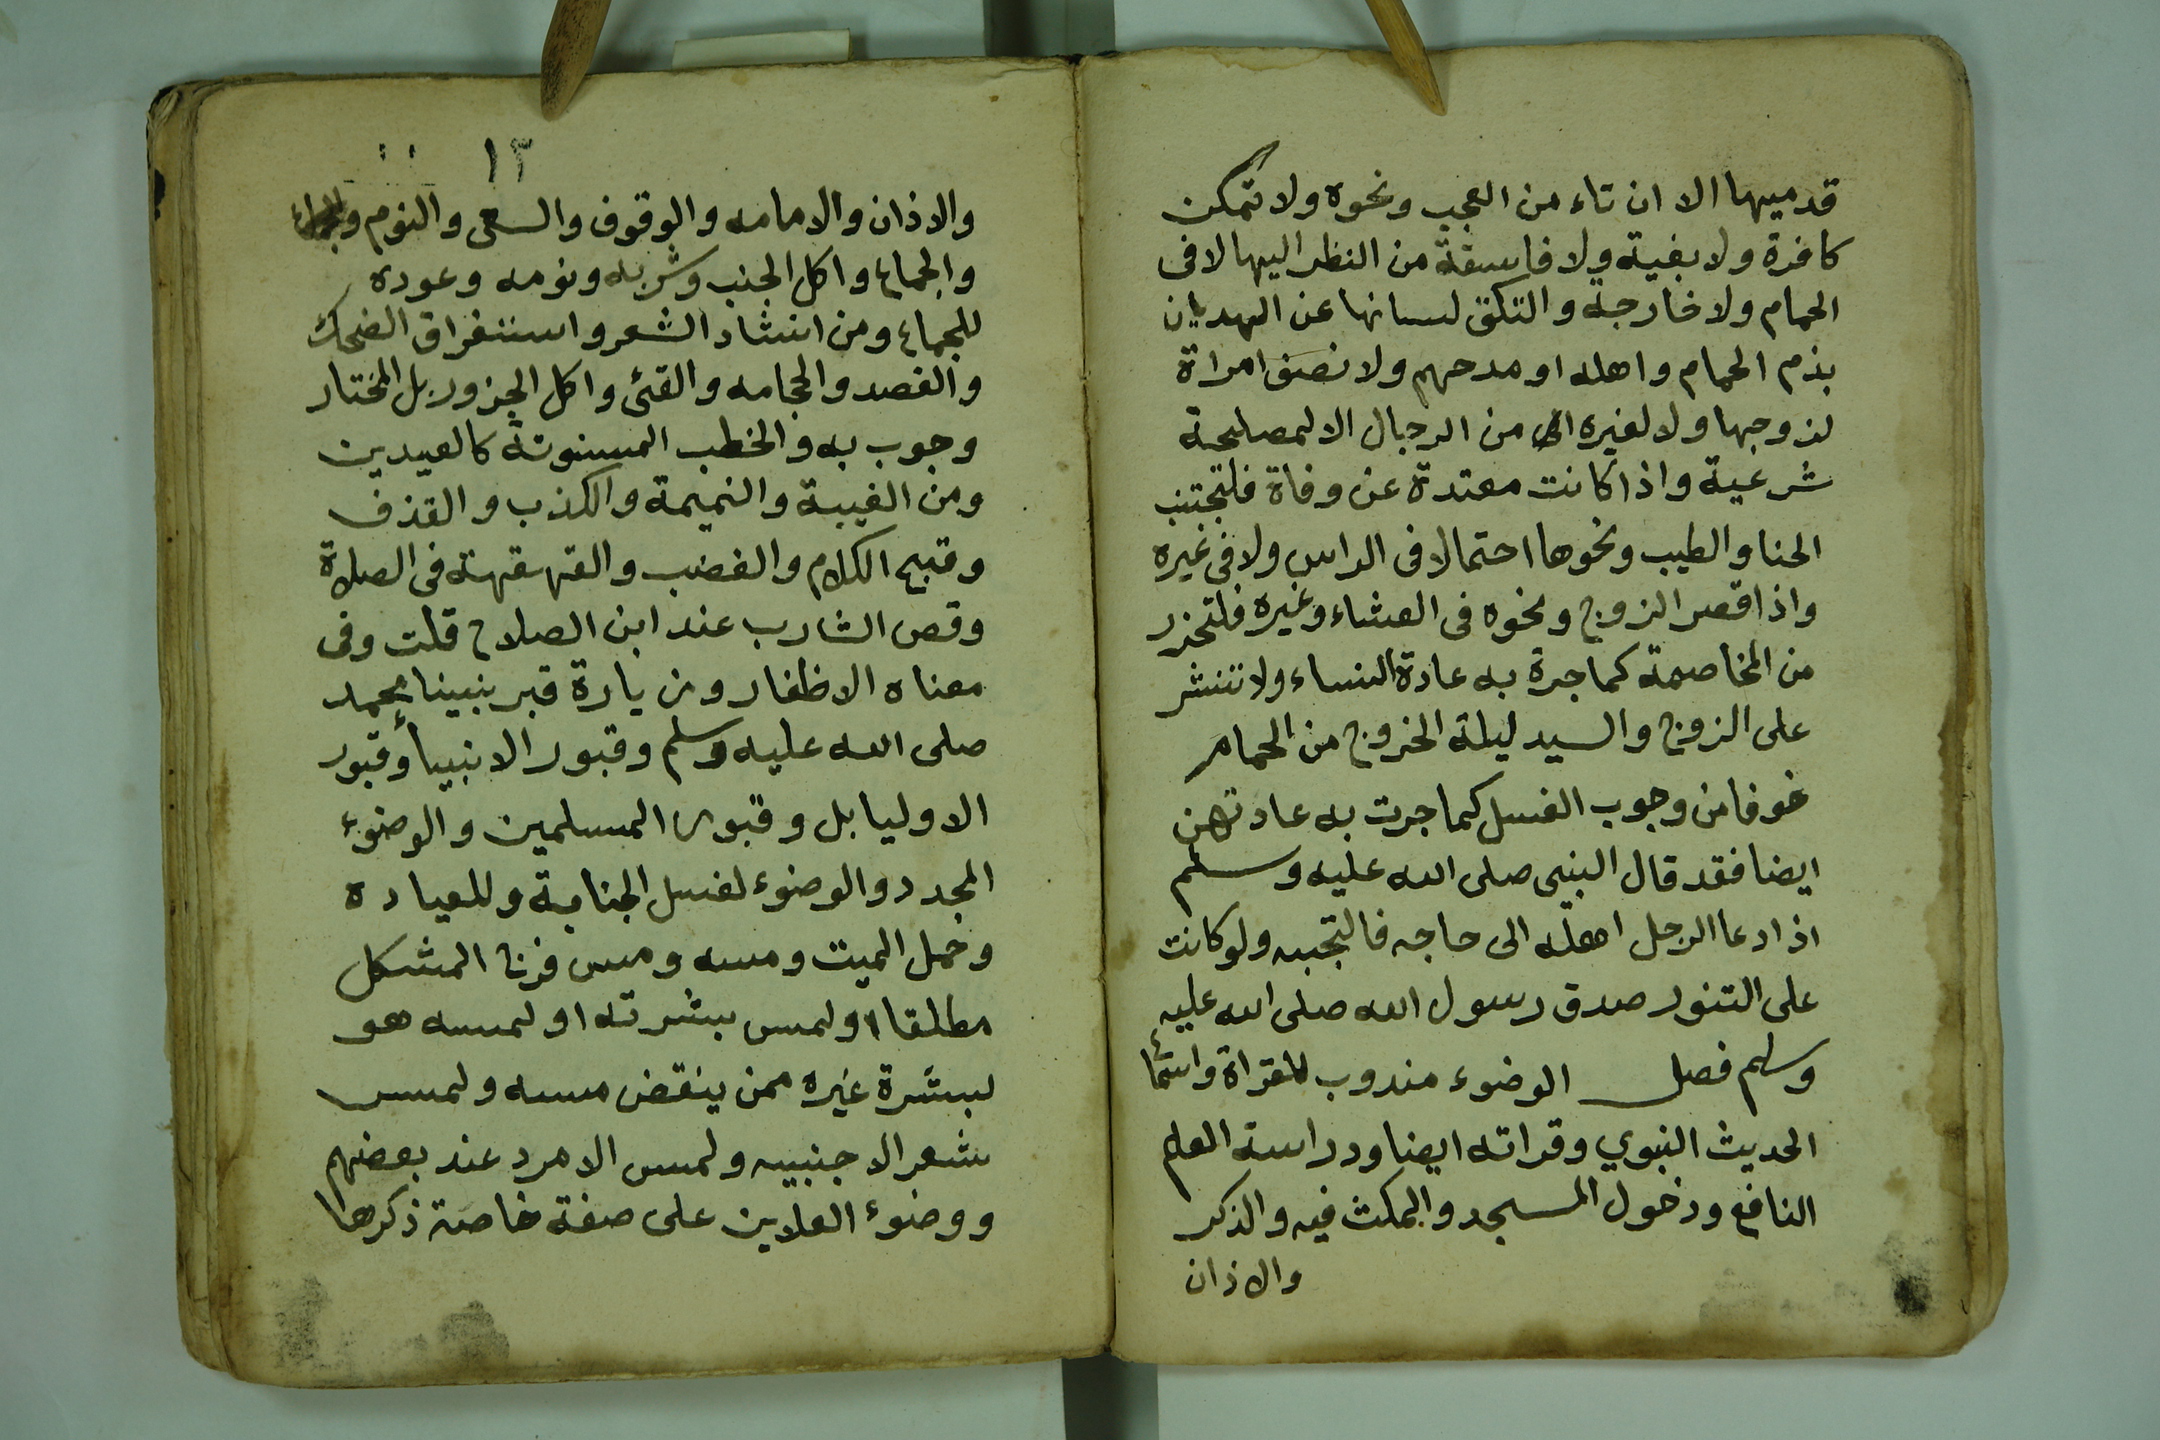 قدميها الا ان تاء من العجب ونحوه ولا تمكن
كافرة ولا بغية ولا فاسقة من النظر اليها لا فى
الحمام ولا خارجة والتكف لسانها عن الهديان
بذم الحمام واهله او مدحهم ولا تصف امراة
لزوجها ولا لغيره من الرجال الا لمصلحة
شرعية واذا كانت معتدة عن وفاة فلتجتنب
الحنا والطيب ونحوها احتمالا فى الراس ولا فى غيره
واذا قصر الزوج ونحوه فى العشاء وغيره فلتحذر
من المخاصمة كما جرة به عادة النساء ولا تنشر
على الزوج والسيد ليلة الخروج من الحمام
خوفا من وجوب الغسل كما جرت به عادتهن
ايضا فقد قال النبى صلى الله عليه وسلم
اذا دعا الرجل اهله الى حاجه فالتجبه ولو كانت
على التنور صدق رسول الله صلى الله عليه
وسلم فصل الوضوء مندوب للقراة واستما
الحديث النبوي وقراته ايضا ودراسة العلم
النافع ودخول المسجد والمكث فيه والذكر
والاذان
١٣
والاذان والامامه والوقوف والسعى والنوم
والجماع واكل الجنب وشربه ونومه وعوده
للجماع ومن انشاد الشعر واستغراق الضحك
والفصد والحجامه والقئ واكل الجزور بل المختار
وجوب به والخطب المسنونة كالعيدين
ومن الغيبة والنميمة والكذب والقذف
وقبيح الكلام والغضب والقهقهة فى الصلاة
وقص الشارب عند ابن الصلاح قلت وفى
معناه الاظفار وزيارة قبر نبينا محمد
صلى الله عليه وسلم وقبور الانبيا وقبور
الاوليا بل وقبور المسلمين والوضوء
المجدد والوضوء لغسل الجنابة وللعيادة
وحمل الميت ومسه ومس فرج المشكل
مطلقا اولمس بشرته او لمسه هو
لبشرة غيره ممن ينقض مسه ولمس
شعر الاجنبيه ولمس الامرد عند بعضهم
ووضوء العلاين على صفة خاصة ذكرها